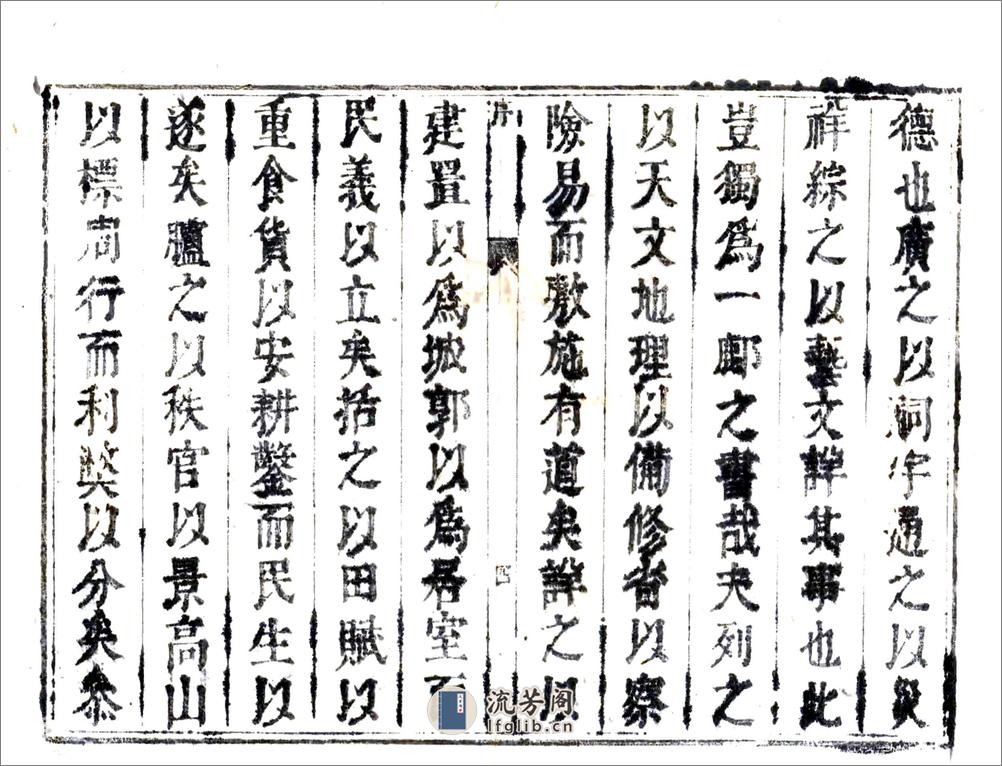 德也廣之以祠宇通之以災
祥綜之以藝文詳其事也此
豈獨爲一郡之書哉夫列之
以天文地理以備修省以察
險易而敷施有道矣詳之以
序
四
建置以爲城郭以爲居室而
民義以立矣括之以田賦以
重食貨以安耕鑿而民生以
遂矣臚之以秩官以景高山
以標周行而利獘以分矣叅
流芳阁
lfglib.cn